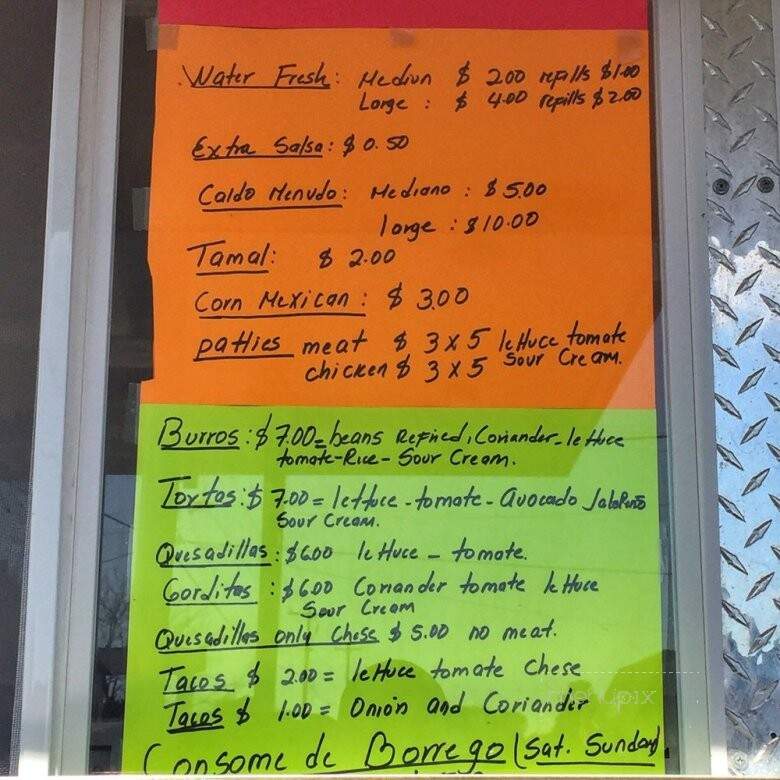 Water Fresh: Mediun $ 2.00 refills $1.00
Large : $ 4.00 refills $2.00
Extra Salsa: $ 0.50
Caldo Menudo: Mediano : $5.00
large : $10.00
Tamal: $ 2.00
Corn Mexican : $ 3.00
patties meat $ 3 x 5 lettuce tomate
chicken $ 3 x 5 Sour Cream.
Burros : $ 7.00 = beans Refried, Coriander - lettuce
tomate - Rice - Sour Cream.
Tortas : $ 7.00 = lettuce - tomate - Avocado Jalapeño
Sour Cream.
Quesadillas : $6.00 lettuce - tomate.
Gorditas : $6.00 Coriander tomate lettuce
Sour Cream
Quesadillas only Chese $ 5.00 no meat.
Tacos $ 2.00 = lettuce tomate Chese
Tacos $ 1.00 = Onion and Coriander
Consome de Borrego (Sat. Sunday)